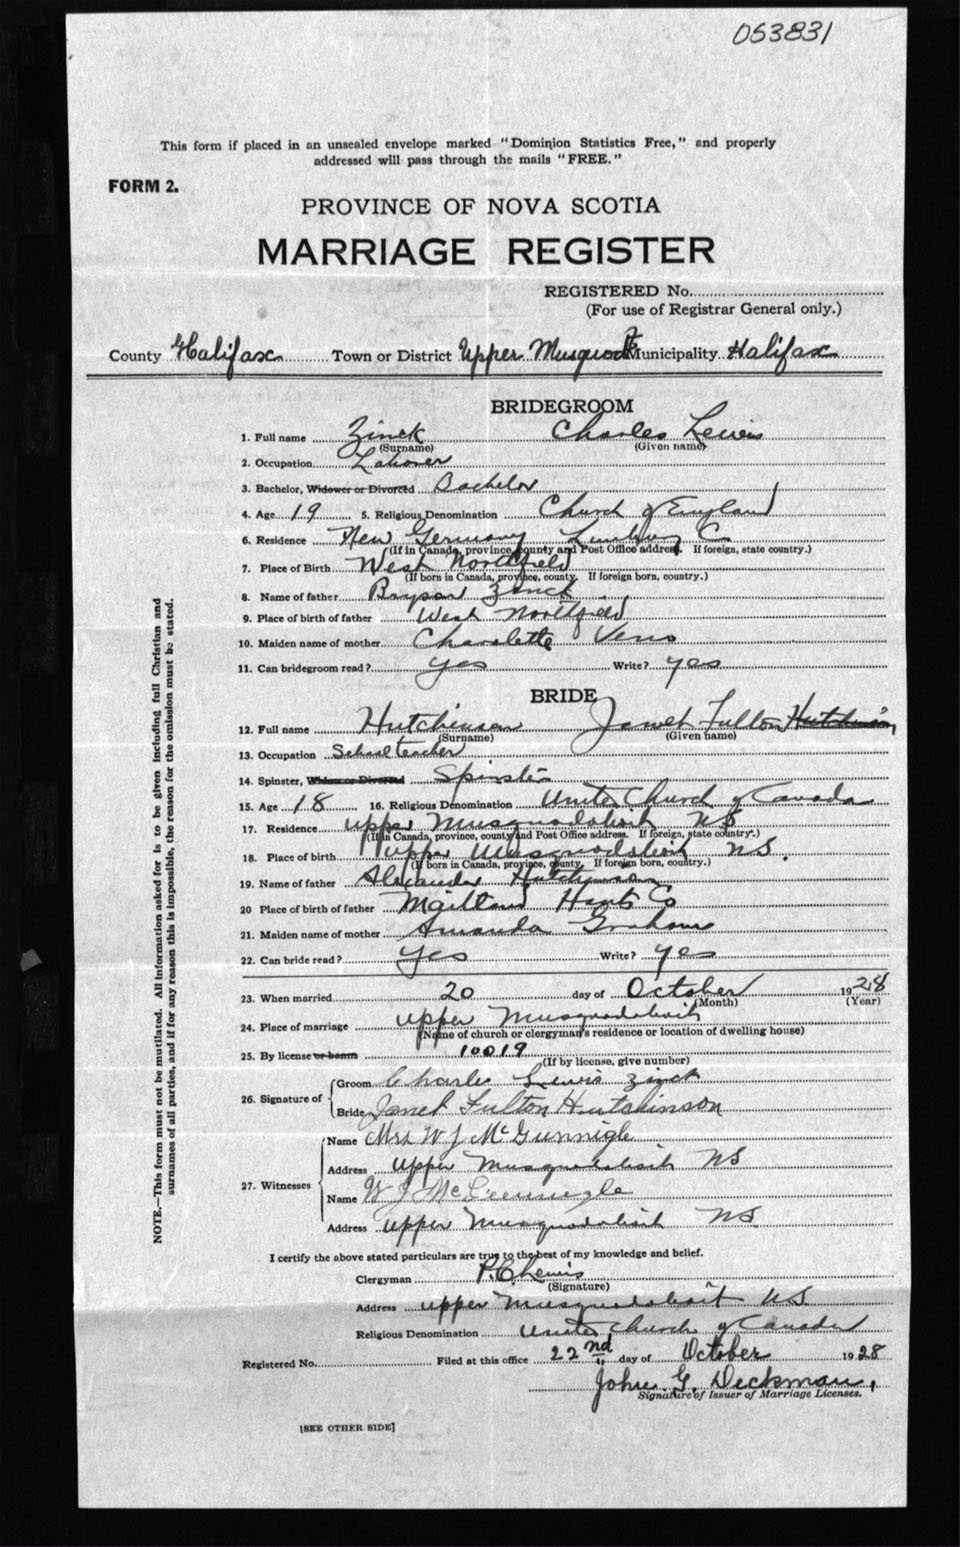 053831
This form if placed in an unsealed envelope marked "Dominion Statistics Free," and properly
addressed will pass through the mails "FREE."
FORM 2.
PROVINCE OF NOVA SCOTIA
MARRIAGE REGISTER
REGISTERED No.
(For use of Registrar General only.)
County Halifax Town or District Upper Musquodt Municipality Halifax
BRIDEGROOM
1. Full name Zinck Charles Lewis
(Surname) (Given name)
2. Occupation Labourer
3. Bachelor, Widower or Divorced Bachelor
4. Age 19 5. Religious Denomination Church of England
6. Residence New Germany Lunenburg C
(If in Canada, province, county and Post Office address. If foreign, state country.)
7. Place of Birth West Northfield
(If born in Canada, province, county. If foreign born, country.)
8. Name of father Bryson Zinck
9. Place of birth of father West Northfield
10. Maiden name of mother Charolette
11. Can bridegroom read? yes Write? yes
BRIDE
12. Full name Hutchinson Janet Fulton Hutchinson
(Surname) (Given name)
13. Occupation School teacher
14. Spinster, Widow or Divorced Spinster
15. Age 18 16. Religious Denomination United Church of Canada
17. Residence Upper Musquodoboit NS
(If in Canada, province, county and Post Office address. If foreign, state country.)
18. Place of birth Upper Musquodoboit NS.
(If born in Canada, province, county. If foreign born, country.)
19. Name of father Alexander Hutchinson
20 Place of birth of father Maitland Hants Co
21. Maiden name of mother Amanda Graham
22. Can bride read? yes Write? yes
23. When married 20 day of October 1928
(Month) (Year)
24. Place of marriage Upper Musquodoboit
(Name of church or clergyman's residence or location of dwelling house)
25. By license or banns 10019
(If by license, give number)
26. Signature of Groom Charles Lewis Zinck
Bride Janet Fulton Hutchinson
27. Witnesses Name Mrs W J McGunnigle
Address Upper Musquodoboit NS
Name W J McGunnigle
Address Upper Musquodoboit NS
I certify the above stated particulars are true to the best of my knowledge and belief.
Clergyman P. C. Lewis
(Signature)
Address Upper Musquodoboit NS
Religious Denomination United Church of Canada
Registered No. Filed at this office 22nd day of October 1928
John G. Deckman,
Signature of Issuer of Marriage Licenses.
[SEE OTHER SIDE]
NOTE.—This form must not be mutilated. All information asked for is to be given including full Christian and
surnames of all parties, and if for any reason this is impossible, the reason for the omission must be stated.